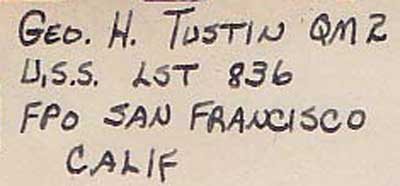 GEO. H. TUSTIN QM2
U.S.S. LST 836
FPO SAN FRANCISCO
CALIF